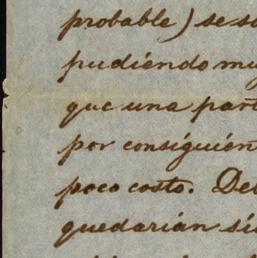 probable) se
pudiendo
que una part
por consiguien
poco costo.
quedarian